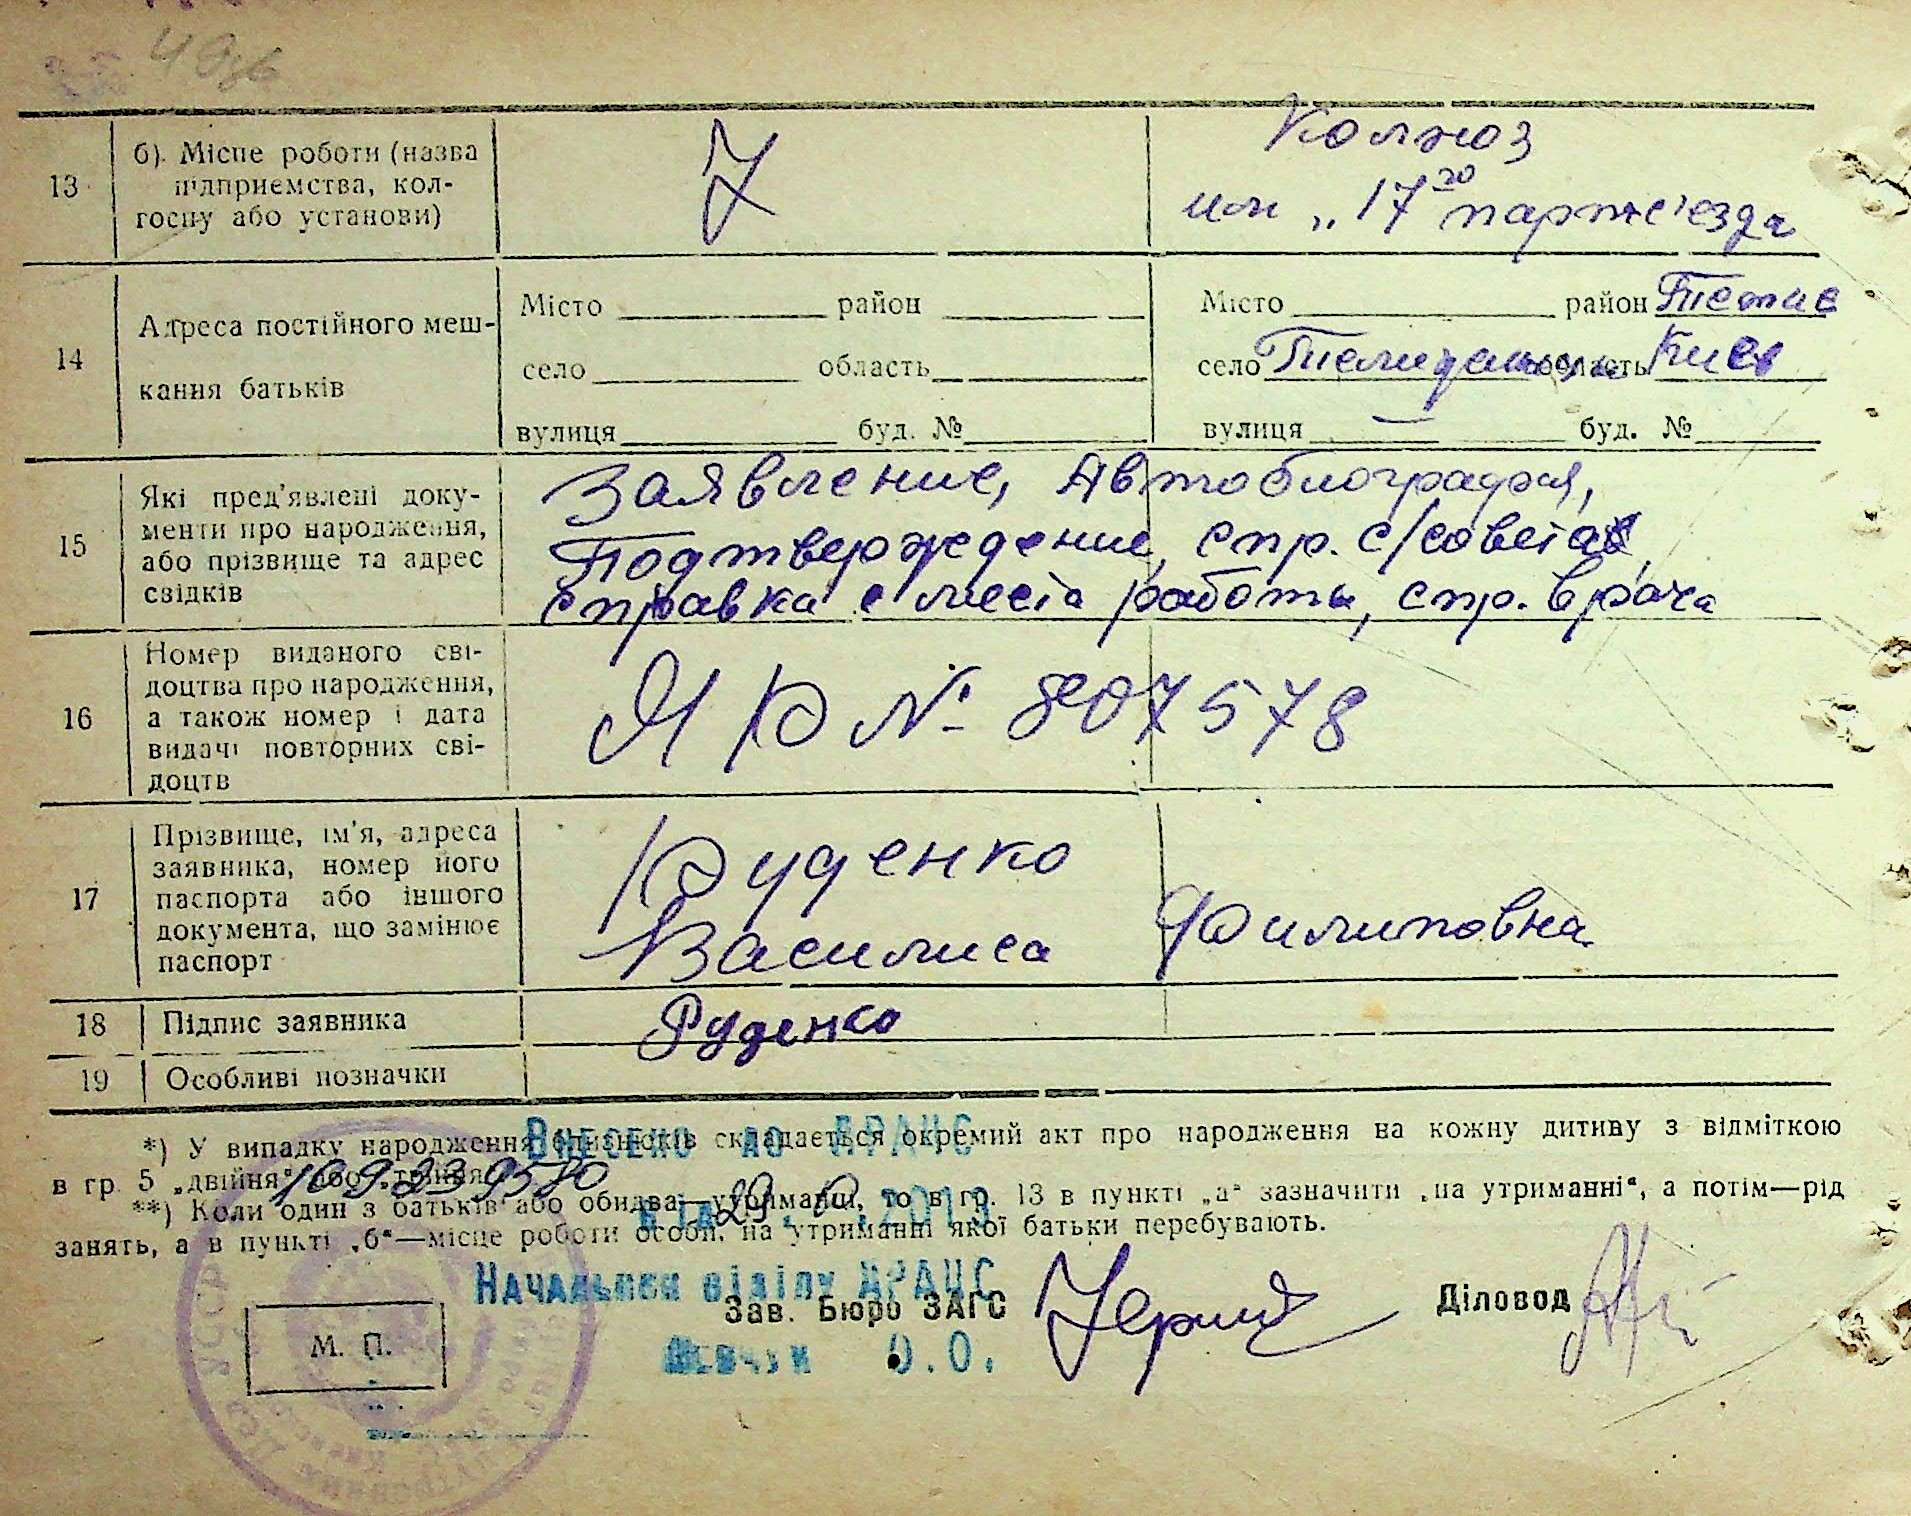 13
б). Місце роботи (назва
підприємства, кол-
госпу або установи)
Z
Колхоз
им „17го партсъезда
14
Адреса постійного меш-
кання батьків
Місто район
село область
вулиця буд. №
Місто район Тетиев
село область Киев
вулиця — буд. №
15
Які пред'явлені доку-
менти про народження,
або прізвище та адрес
свідків
Заявление, Автобиография,
Подтверждение, спр. с/совета
справка с места работы, спр. врача
16
Номер виданого сві-
доцтва про народження,
а також номер і дата
видачі повторних сві-
доцтв
ЯР № 807578
17
Прізвище, ім'я, адреса
заявника, номер його
паспорта або іншого
документа, що замінює
паспорт
Руденко
Василиса Филиповна
18
Підпис заявника
Руденко
19
Особливі позначки
*) У випадку народження близнюків складається окремий акт про народження на кожну дитину з відміткою
в гр. 5 „двійня" або „трійня".
**) Коли один з батьків або обидва—утриманці, то в гр. 13 в пункті „а" зазначити „на утриманні", а потім—рід
занять, а в пункті „б"—місце роботи особи, на утриманні якої батьки перебувають.
Внесено до ДРАЦС
Начальник відділу ДРАЦС
Зав. Бюро ЗАГС
Діловод
Шевчук О.О.
М. П.